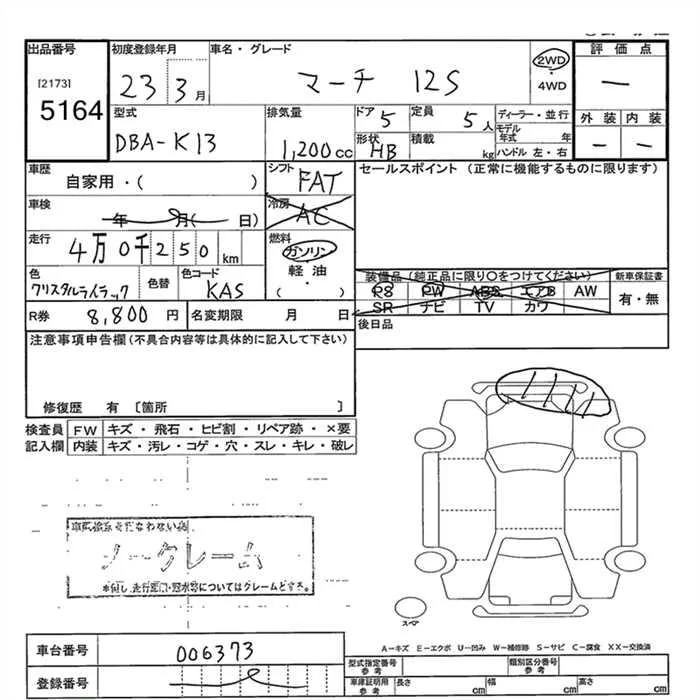 出品番号
[2173]
5164
初度登録年月
23 3月
車名・グレード
マーチ 12S
2WD
・
4WD
評価点
―
外装 内装
― ―
型式
DBA-K13
排気量
1,200cc
ドア 5
定員 5人
ディーラー・並行
形状 HB
積載 kg
モデル年式 年
ハンドル 左・右
車歴
自家用・( )
シフト
FAT
セールスポイント (正常に機能するものに限ります)
車検
年 月( 日)
冷房
AC
走行
4万0千250km
燃料
ガソリン
軽油
( ・ )
色
クリスタルライラック
色替
色コード
KAS
装備品(純正品に限り○をつけてください)
PS PW ABS エアB AW
SR ナビ TV カワ
新車保証書
有・無
R券 8,800円
名変期限 月 日
後日品
注意事項申告欄(不具合内容等は具体的に記入して下さい)
修復歴 有 〔箇所 〕
検査員記入欄
FW キズ・飛石・ヒビ割・リペア跡・×要
内装 キズ・汚レ・コゲ・穴・スレ・キレ・破レ
ノークレーム
スペア
A―キズ E―エクボ U―凹み W―補修跡 S―サビ C―腐食 XX―交換済
車台番号 006373
登録番号
型式指定番号 参考
類別区分番号 参考
車庫証明用 参考
長さ cm
幅 cm
高さ cm